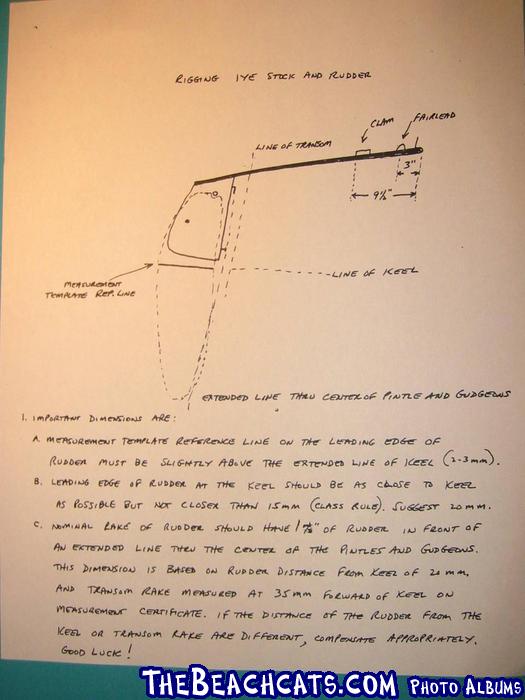 RIGGING IYE STOCK AND RUDDER
CLAM
FAIRLEAD
LINE OF TRANSOM
3"
9½"
MEASUREMENT
TEMPLATE REF. LINE
LINE OF KEEL
EXTENDED LINE THRU CENTER OF PINTLE AND GUDGEONS
1. IMPORTANT DIMENSIONS ARE:
A. MEASUREMENT TEMPLATE REFERENCE LINE ON THE LEADING EDGE OF
RUDDER MUST BE SLIGHTLY ABOVE THE EXTERDED LINE OF KEEL (2-3mm).
B. LEADING EDGE OF RUDDER AT THE KEEL SHOULD BE AS CLOSE TO KEEL
AS POSSIBLE BUT NOT CLOSER THAN 15mm (CLASS RULE). SUGGEST 20mm.
C. NOMINAL RAKE OF RUDDER SHOULD HAVE OF RUDDER IN FRONT OF
AN EXTENDED LINE THRU THE CENTER OF THE PINTLES AND GUDGEONS.
THIS DIMENSION IS BASED ON RUDDER DISTANCE FROM KEEL OF 20mm,
AND TRANSOM RAKE MEASURED AT 35mm FORWARD OF KEEL ON
MEASUREMENT CERTIFICATE. IF THE DISTANCE OF THE RUDDER FROM THE
KEEL OR TRANSOM RAKE ARE DIFFERENT, COMPENSATE APPROPRIATELY.
GOOD LUCK!
THEBEACHCATS.COM PHOTO ALBUMS